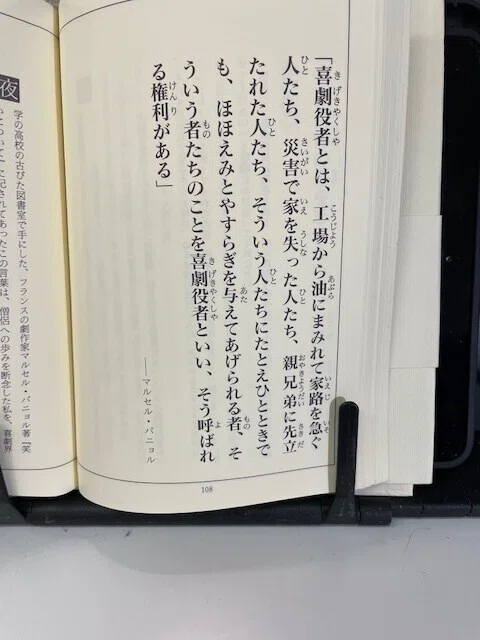 「喜劇役者とは、工場から油にまみれて家路を急ぐ
人たち、災害で家を失った人たち、親兄弟に先立
たれた人たち、そういう人たちにたとえひとときで
も、ほほえみとやすらぎを与えてあげられる者、そ
ういう者たちのことを喜劇役者といい、そう呼ばれ
る権利がある」
――マルセル・パニョル
108
夜
学の高校の古びた図書室で手にした、フランスの劇作家マルセル・パニョル著『笑
に記されてあったこの言葉は、僧侶への歩みを断念した私を、喜劇界